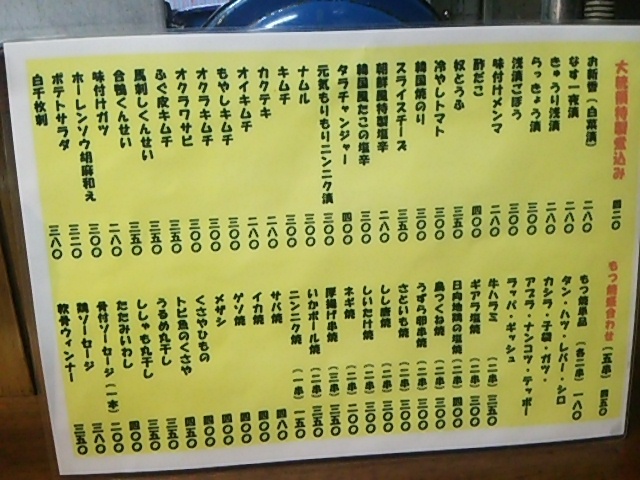 大龍門特製煮込み 四二〇
お新香（白菜漬） 二八〇
なす一夜漬 二八〇
きゅうり浅漬 二八〇
らっきょう漬 三〇〇
浅漬ごぼう 三〇〇
味付けメンマ 二八〇
酢だこ 四〇〇
奴とうふ 二五〇
冷やしトマト 三〇〇
韓国焼のり 二〇〇
スライスチーズ 三五〇
朝鮮風特製塩辛 二八〇
韓国風たこの塩辛 三〇〇
タラチャンジャー 四〇〇
元気もりもりニンニク漬 三〇〇
ナムル 三〇〇
キムチ 三〇〇
カクテキ 二八〇
オイキムチ 二八〇
もやしキムチ 三〇〇
オクラキムチ 三〇〇
オクラワサビ 三〇〇
ふぐ皮キムチ 三五〇
馬刺しくんせい 三五〇
合鴨くんせい 三五〇
味付けガツ 二八〇
ホーレンソウ胡麻和え 三〇〇
ポテトサラダ 三二〇
白千枚刺 三八〇
もつ焼盛合わせ（五串） 四五〇
もつ焼単品（各二串） 一八〇
タン・ハツ・レバー・シロ
カシラ・子袋・ガツ・
アブラ・ナンコツ・テッポー
ラッパ・ギッシュ
牛ハラミ（二串） 三五〇
ギアラ塩焼（二串） 三〇〇
日向地鶏の塩焼（二串） 四〇〇
鳥つくね焼（二串） 三〇〇
うずら卵串焼（二串） 三〇〇
さといも焼（二串） 三〇〇
しし唐焼（二串） 三〇〇
しいたけ焼（二串） 三〇〇
ネギ焼（二串） 二〇〇
厚揚げ串焼（二串） 三五〇
いかボール焼（二串） 三五〇
ニンニク焼（一串） 一五〇
サバ焼 四八〇
イカ焼 四〇〇
ゲソ焼 四〇〇
メザシ 四〇〇
くさやひもの 四〇〇
トビ魚のくさや 四五〇
うるめ丸干し 三五〇
ししゃも丸干し 三五〇
たたみいわし 四〇〇
骨付ソーセージ（一本） 二〇〇
鶏ソーセージ 三八〇
軟骨ウィンナー 三五〇